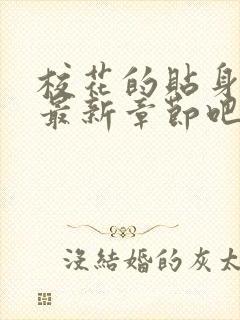 校花的貼身
最新章節吧
沒結婚的灰太